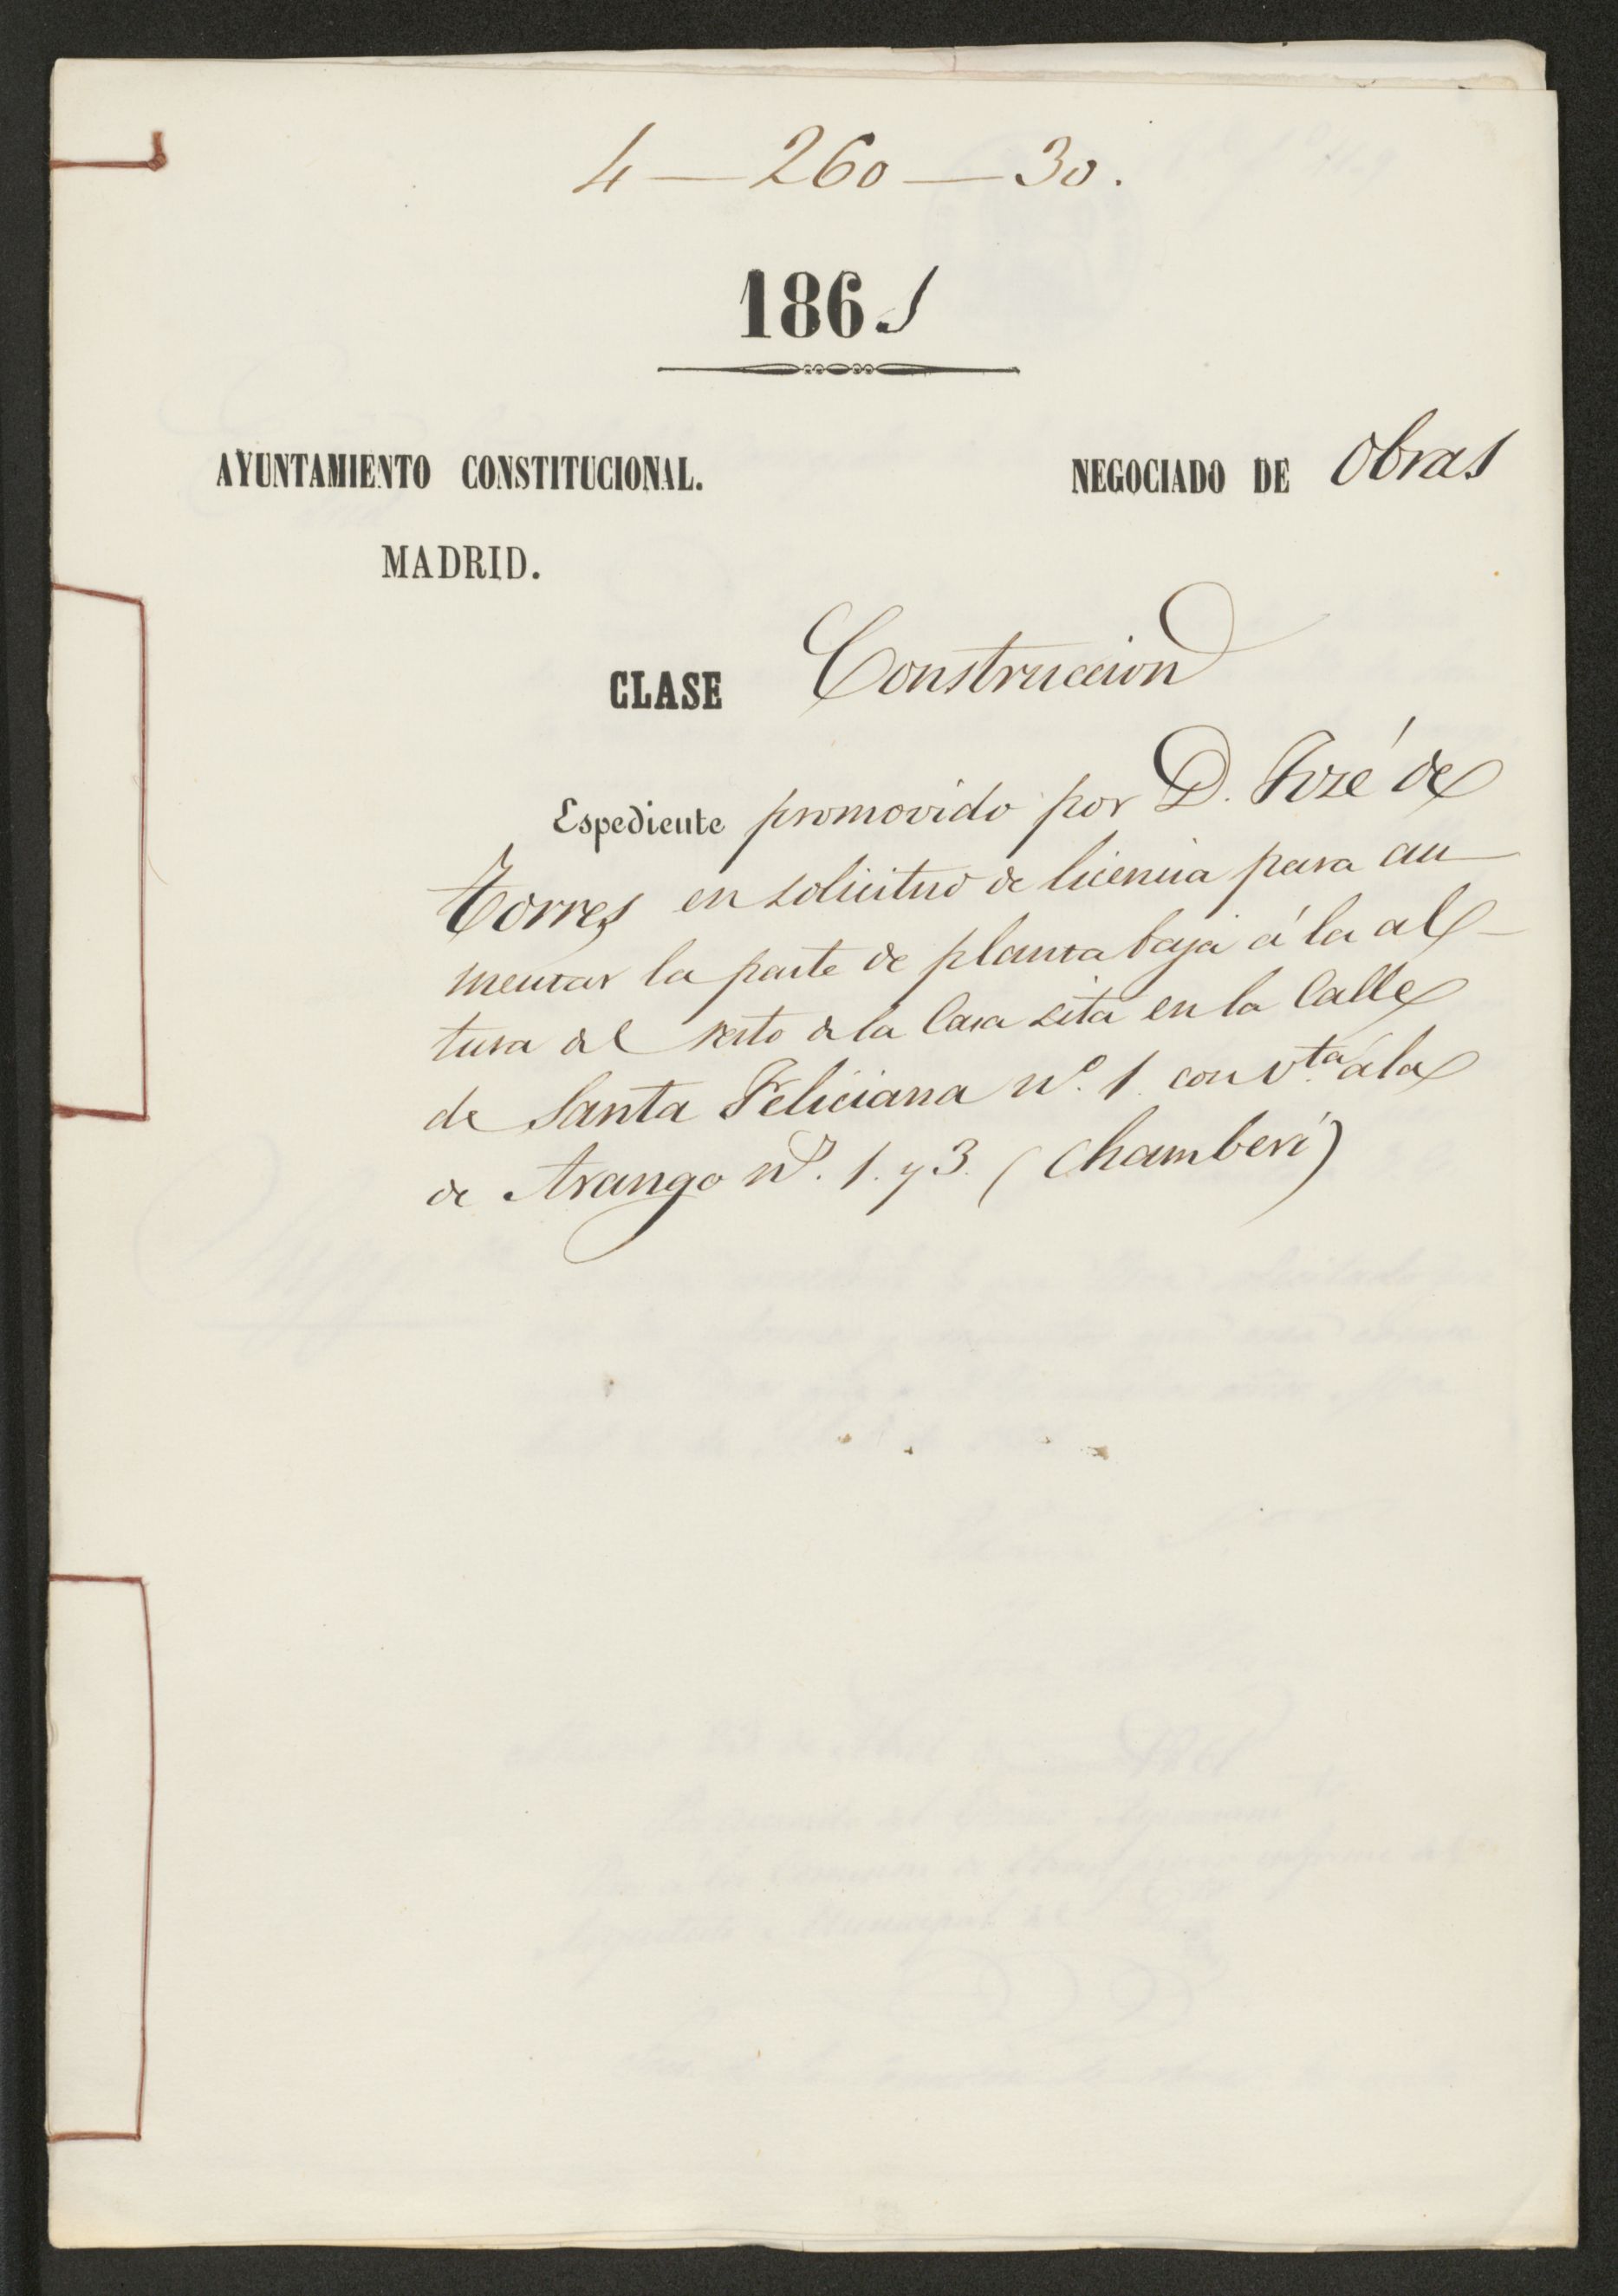 4—260—30.
1861
AYUNTAMIENTO CONSTITUCIONAL.
NEGOCIADO DE Obras
MADRID.
CLASE Construccion
Espediente promovido por D. José de
Torres en solicitud de licencia para au-
mentar la parte de planta baja á la al-
tura del resto de la Casa sita en la Calle
de Santa Feliciana nº. 1. con vta á la
de Arango nº. 1. y 3. (Chamberí)